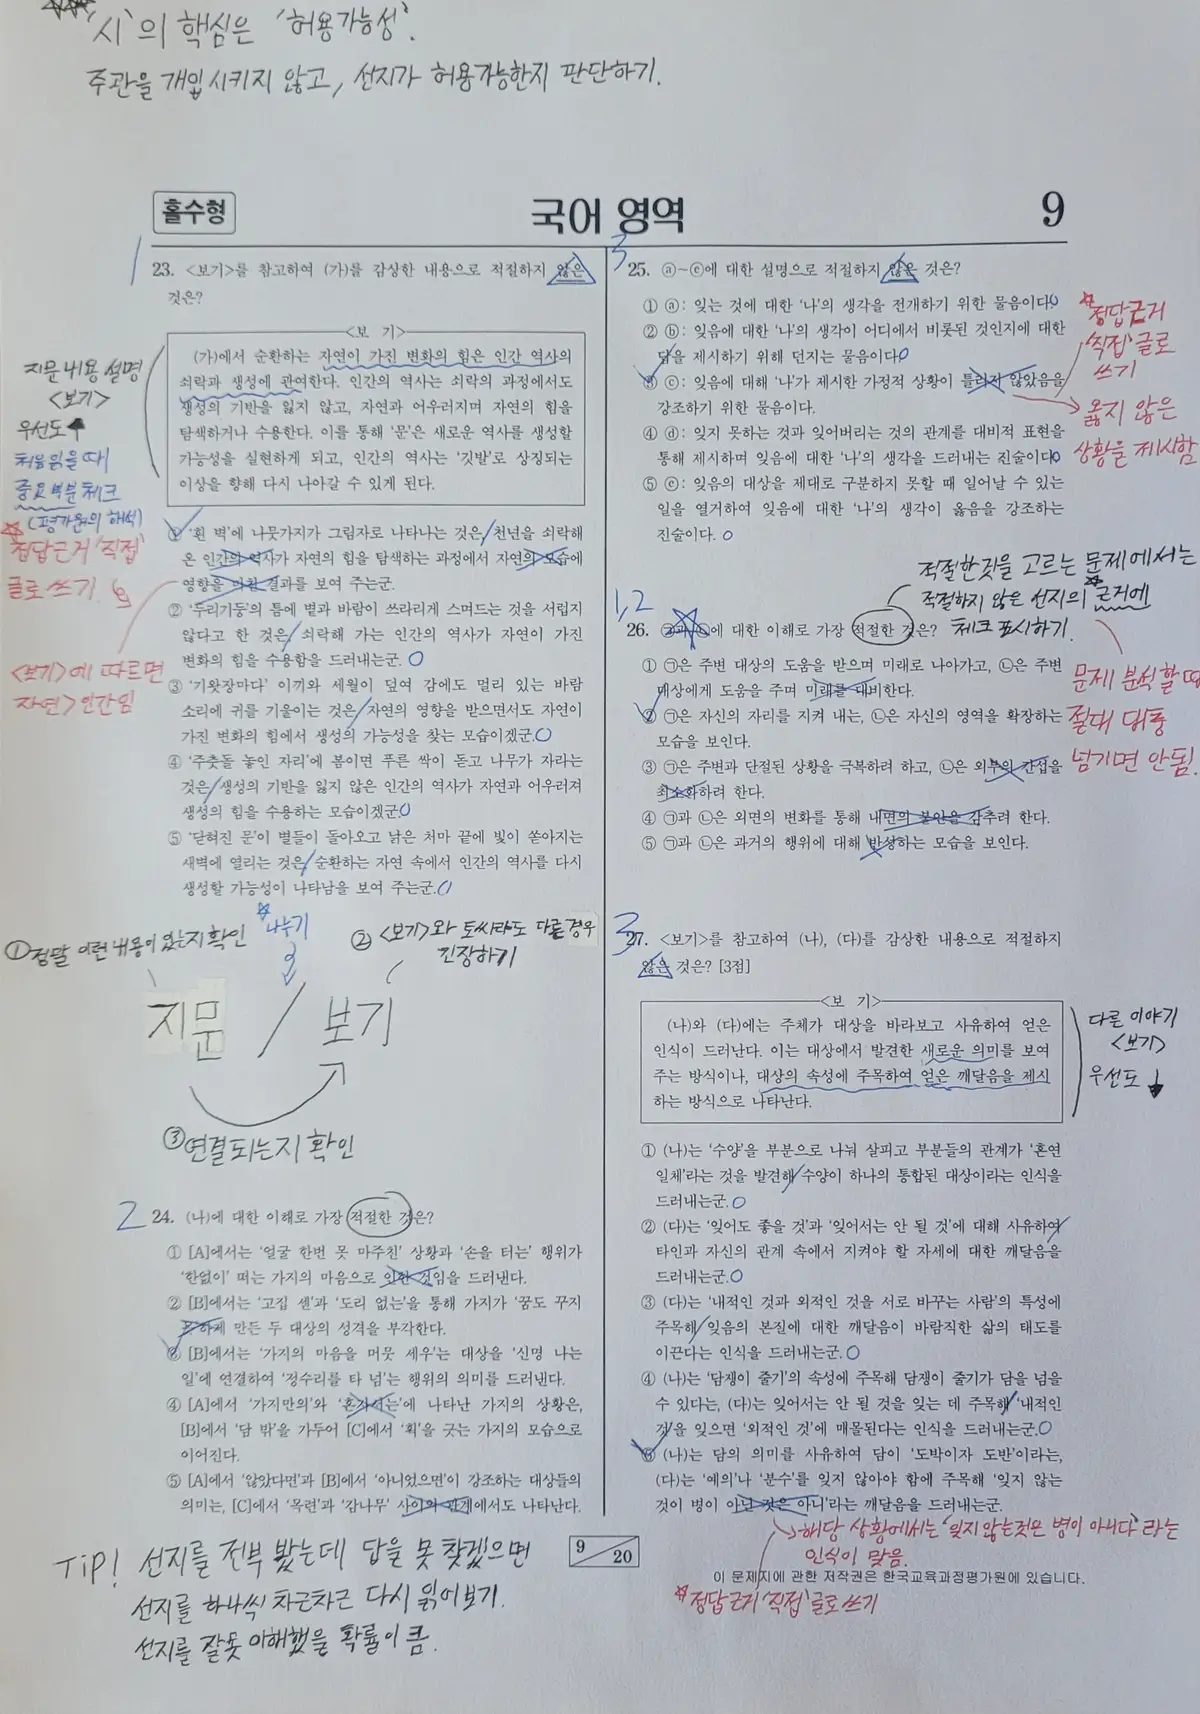 '시'의 핵심은 '허용가능성'.
주관을 개입시키지 않고, 선지가 허용가능한지 판단하기.
홀수형
국어 영역
9
1
23. <보기>를 참고하여 (가)를 감상한 내용으로 적절하지 않은
것은?
<보 기>
(가)에서 순환하는 자연이 가진 변화의 힘은 인간 역사의
쇠락과 생성에 관여한다. 인간의 역사는 쇠락의 과정에서도
생성의 기반을 잃지 않고, 자연과 어우러지며 자연의 힘을
탐색하거나 수용한다. 이를 통해 '문'은 새로운 역사를 생성할
가능성을 실현하게 되고, 인간의 역사는 '깃발'로 상징되는
이상을 향해 다시 나아갈 수 있게 된다.
지문 내용 설명
<보기>
우선도↑
처음 읽을 때
중요부분 체크
(평가원의 해석)
정답근거 '직접'
글로 쓰기.
<보기>에 따르면
자연>인간임
① '흰 벽'에 나뭇가지가 그림자로 나타나는 것은/천년을 쇠락해
온 인간의 역사가 자연의 힘을 탐색하는 과정에서 자연의 모습에
영향을 미친 결과를 보여 주는군.
② '두리기둥'의 틈에 볕과 바람이 쓰라리게 스며드는 것을 서럽지
않다고 한 것은/쇠락해 가는 인간의 역사가 자연이 가진
변화의 힘을 수용함을 드러내는군.
③ '기왓장마다' 이끼와 세월이 덮여 감에도 멀리 있는 바람
소리에 귀를 기울이는 것은/자연의 영향을 받으면서도 자연이
가진 변화의 힘에서 생성의 가능성을 찾는 모습이겠군.
④ '주춧돌 놓인 자리'에 봄이면 푸른 싹이 돋고 나무가 자라는
것은/생성의 기반을 잃지 않은 인간의 역사가 자연과 어우러져
생성의 힘을 수용하는 모습이겠군.
⑤ '닫혀진 문'이 별들이 돌아오고 낡은 처마 끝에 빛이 쏟아지는
새벽에 열리는 것은/순환하는 자연 속에서 인간의 역사를 다시
생성할 가능성이 나타남을 보여 주는군.
①정말 이런 내용이 있는지 확인
나누기
② <보기>와 토씨라도 다를 경우
긴장하기
지문 / 보기
③연결되는지 확인
2
24. (나)에 대한 이해로 가장 적절한 것은?
① [A]에서는 '얼굴 한번 못 마주친' 상황과 '손을 터는' 행위가
'한없이' 떠는 가지의 마음으로 인한 것임을 드러낸다.
② [B]에서는 '고집 센'과 '도리 없는'을 통해 가지가 '꿈도 꾸지
못하게 만든 두 대상의 성격을 부각한다.
③ [B]에서는 '가지의 마음을 머뭇 세우'는 대상을 '신명 나는
일'에 연결하여 '정수리를 타 넘'는 행위의 의미를 드러낸다.
④ [A]에서 '가지만의'와 '혼자서는'에 나타난 가지의 상황은,
[B]에서 '담 밖'을 가두어 [C]에서 '획'을 긋는 가지의 모습으로
이어진다.
⑤ [A]에서 '않았다면'과 [B]에서 '아니었으면'이 강조하는 대상들의
의미는, [C]에서 '목련'과 '감나무' 사이의 관계에서도 나타난다.
TIP! 선지를 전부 봤는데 답을 못 찾겠으면
선지를 하나씩 차근차근 다시 읽어보기.
선지를 잘못 이해했을 확률이 큼.
9
20
3
25. ⓐ~ⓔ에 대한 설명으로 적절하지 않은 것은?
① ⓐ: 잊는 것에 대한 '나'의 생각을 전개하기 위한 물음이다.
② ⓑ: 잊음에 대한 '나'의 생각이 어디에서 비롯된 것인지에 대한
답을 제시하기 위해 던지는 물음이다.
③ ⓒ: 잊음에 대해 '나'가 제시한 가정적 상황이 틀리지 않았음을
강조하기 위한 물음이다.
④ ⓓ: 잊지 못하는 것과 잊어버리는 것의 관계를 대비적 표현을
통해 제시하며 잊음에 대한 '나'의 생각을 드러내는 진술이다.
⑤ ⓔ: 잊음의 대상을 제대로 구분하지 못할 때 일어날 수 있는
일을 열거하여 잊음에 대한 '나'의 생각이 옳음을 강조하는
진술이다.
정답근거
'직접' 글로
쓰기
옳지 않은
상황을 제시함
적절한것을 고르는 문제에서는
적절하지 않은 선지의 근거에
체크 표시하기.
1,2
26. ㉠과 ㉡에 대한 이해로 가장 적절한 것은?
① ㉠은 주변 대상의 도움을 받으며 미래로 나아가고, ㉡은 주변
대상에게 도움을 주며 미래를 대비한다.
② ㉠은 자신의 자리를 지켜 내는, ㉡은 자신의 영역을 확장하는
모습을 보인다.
③ ㉠은 주변과 단절된 상황을 극복하려 하고, ㉡은 외부의 간섭을
최소화하려 한다.
④ ㉠과 ㉡은 외면의 변화를 통해 내면의 불안을 감추려 한다.
⑤ ㉠과 ㉡은 과거의 행위에 대해 반성하는 모습을 보인다.
문제 분석할 때
절대 대충
넘기면 안됨.
3
27. <보기>를 참고하여 (나), (다)를 감상한 내용으로 적절하지
않은 것은? [3점]
<보 기>
(나)와 (다)에는 주체가 대상을 바라보고 사유하여 얻은
인식이 드러난다. 이는 대상에서 발견한 새로운 의미를 보여
주는 방식이나, 대상의 속성에 주목하여 얻은 깨달음을 제시
하는 방식으로 나타난다.
다른 이야기
<보기>
우선도↓
① (나)는 '수양'을 부분으로 나눠 살피고 부분들의 관계가 '혼연
일체'라는 것을 발견해/수양이 하나의 통합된 대상이라는 인식을
드러내는군.
② (다)는 '잊어도 좋을 것'과 '잊어서는 안 될 것'에 대해 사유하여/
타인과 자신의 관계 속에서 지켜야 할 자세에 대한 깨달음을
드러내는군.
③ (다)는 '내적인 것과 외적인 것을 서로 바꾸는 사람'의 특성에
주목해/잊음의 본질에 대한 깨달음이 바람직한 삶의 태도를
이끈다는 인식을 드러내는군.
④ (나)는 '담쟁이 줄기'의 속성에 주목해 담쟁이 줄기가 담을 넘을
수 있다는, (다)는 잊어서는 안 될 것을 잊는 데 주목해/'내적인
것'을 잊으면 '외적인 것'에 매몰된다는 인식을 드러내는군.
⑤ (나)는 담의 의미를 사유하여 담이 '도박이자 도반'이라는,
(다)는 '예의'나 '분수'를 잊지 않아야 함에 주목해 '잊지 않는
것이 병이 아닌 것은 아니'라는 깨달음을 드러내는군.
해당 상황에서는 '잊지 않는것은 병이 아니다' 라는
인식이 맞음.
이 문제지에 관한 저작권은 한국교육과정평가원에 있습니다.
정답근거 '직접' 글로 쓰기